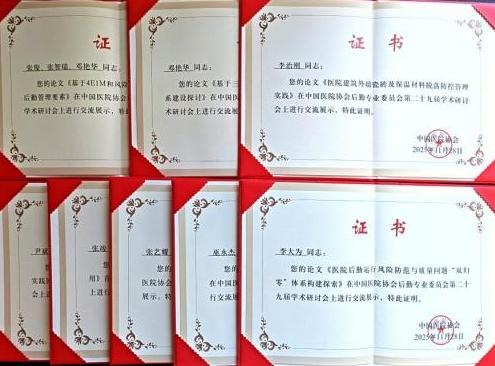 证
张俊、张智瑞、邓艳华 同志：
您的论文《基于4E1M和风险
后勤管理要素》在中国医院协会
学术研讨会上进行交流展示，特此
证
邓艳华 同志：
您的论文《基于三
系建设探讨》在中国
术研讨会上进行交流展
证 书
李治刚 同志：
您的论文《医院建筑外墙瓷砖及保温材料脱落防控管理
实践》在中国医院协会后勤专业委员会第二十九届学术研讨
会上进行交流展示，特此证明。
中国医院协会
2025年11月28日
尹斌
您
实践
会上进
张俊
您
用》在
上进行
张艺耀
您的
医院协会
展示，特
巫永杰
您的
体系
届学术
证 书
李大为 同志：
您的论文《医院后勤运行风险防范与质量问题“双归
零”体系构建探索》在中国医院协会后勤专业委员会第二十
九届学术研讨会上进行交流展示，特此证明。
中国医院协会
2025年11月28日